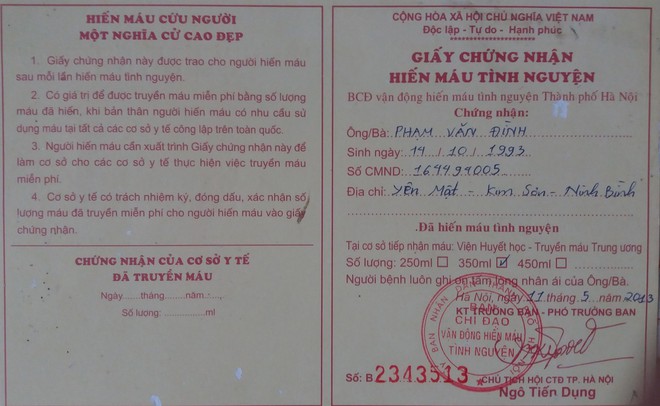 HIẾN MÁU CỨU NGƯỜI
MỘT NGHĨA CỬ CAO ĐẸP
1. Giấy chứng nhận này được trao cho người hiến máu
sau mỗi lần hiến máu tình nguyện.
2. Có giá trị để được truyền máu miễn phí bằng số lượng
máu đã hiến, khi bản thân người hiến máu có nhu cầu sử
dụng máu tại tất cả các cơ sở y tế công lập trên toàn quốc.
3. Người hiến máu cần xuất trình Giấy chứng nhận này để
làm cơ sở cho các cơ sở y tế thực hiện việc truyền máu
miễn phí.
4. Cơ sở y tế có trách nhiệm ký, đóng dấu, xác nhận số
lượng máu đã truyền miễn phí cho người hiến máu vào giấy
chứng nhận.
CHỨNG NHẬN CỦA CƠ SỞ Y TẾ
ĐÃ TRUYỀN MÁU
Ngày......tháng.........năm......,
Số lượng: ....................ml
CỘNG HÒA XÃ HỘI CHỦ NGHĨA VIỆT NAM
Độc lập - Tự do - Hạnh phúc
GIẤY CHỨNG NHẬN
HIẾN MÁU TÌNH NGUYỆN
BCĐ vận động hiến máu tình nguyện Thành phố Hà Nội
Chứng nhận:
Ông/Bà: PHẠM VĂN ĐÌNH
Sinh ngày: 14 / 10 / 1993
Số CMND: 164499005
Địa chỉ: Yên Mật - Kim Sơn - Ninh Bình
Đã hiến máu tình nguyện
Tại cơ sở tiếp nhận máu: Viện Huyết học - Truyền máu Trung ương
Số lượng: 250ml 350ml 450ml
Người bệnh luôn ghi ơn tấm lòng nhân ái của Ông/Bà.
Hà Nội, ngày 11 tháng 5 năm 2013
KT TRƯỞNG BAN - PHÓ TRƯỞNG BAN
BAN
CHỈ ĐẠO
VẬN ĐỘNG HIẾN MÁU
TÌNH NGUYỆN
Số: B 2343513
CHỦ TỊCH HỘI CTĐ TP. HÀ NỘI
Ngô Tiến Dụng